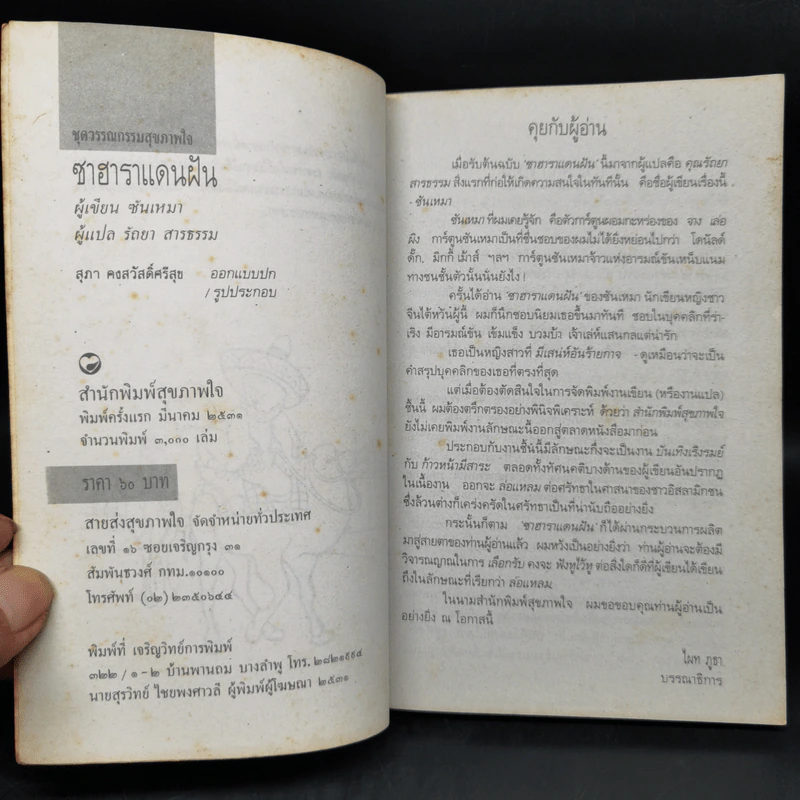 ชุดวรรณกรรมสุขภาพใจ
ซาฮาราแดนฝัน
ผู้เขียน ซันเหมา
ผู้แปล รัถยา สารธรรม
สุภา คงสวัสดิ์ศรีสุข ออกแบบปก
/ รูปประกอบ
สำนักพิมพ์สุขภาพใจ
พิมพ์ครั้งแรก มีนาคม ๒๕๓๑
จำนวนพิมพ์ ๓,๐๐๐ เล่ม
ราคา ๖๐ บาท
สายส่งสุขภาพใจ จัดจำหน่ายทั่วประเทศ
เลขที่ ๑๖ ซอยเจริญกรุง ๓๑
สัมพันธวงศ์ กทม.๑๐๑๐๐
โทรศัพท์ (๐๒) ๒๓๕๐๖๔๔
พิมพ์ที่ เจริญวิทย์การพิมพ์
๓๒๒ / ๑-๒ บ้านพานถม บางลำพู โทร. ๒๘๒๑๙๙๔
นายสุรวิทย์ ไชยพงศาวลี ผู้พิมพ์ผู้โฆษณา ๒๕๓๑
คุยกับผู้อ่าน
เมื่อรับต้นฉบับ 'ซาฮาราแดนฝัน' นี้มาจากผู้แปลคือ คุณรัถยา
สารธรรม สิ่งแรกที่ก่อให้เกิดความสนใจในทันทีนั้น คือชื่อผู้เขียนเรื่องนี้
- ซันเหมา
ซันเหมา ที่ผมเคยรู้จัก คือตัวการ์ตูนผอมกะหร่องของ จาง เล่อ
ผิง การ์ตูนซันเหมาเป็นที่ชื่นชอบของผมไม่ได้ยิ่งหย่อนไปกว่า โดนัลด์
ดั๊ก, มิกกี้ เม้าส์ ฯลฯ การ์ตูนซันเหมาจ้าวแห่งอารมณ์ขันเหน็บแนม
ทางชนชั้นตัวนั้นนั่นยังไง !
ครั้นได้อ่าน 'ซาฮาราแดนฝัน' ของซันเหมา นักเขียนหญิงชาว
จีนไต้หวันผู้นี้ ผมก็นึกชอบนิยมเธอขึ้นมาทันที ชอบในบุคคลิกที่ร่า-
เริง มีอารมณ์ขัน เข้มแข็ง บวมบ้า เจ้าเล่ห์แสนกลแต่น่ารัก
เธอเป็นหญิงสาวที่ มีเสน่ห์อันร้ายกาจ - ดูเหมือนว่าจะเป็น
คำสรุปบุคคลิกของเธอที่ตรงที่สุด
แต่เมื่อต้องตัดสินใจในการจัดพิมพ์งานเขียน (หรืองานแปล)
ชิ้นนี้ ผมต้องตรึกตรองอย่างพินิจพิเคราะห์ ด้วยว่า สำนักพิมพ์สุขภาพใจ
ยังไม่เคยพิมพ์งานลักษณะนี้ออกสู่ตลาดหนังสือมาก่อน
ประกอบกับงานชิ้นนี้มีลักษณะกึ่งจะเป็นงาน บันเทิงเริงรมย์
กับ ก้าวหน้ามีสาระ ตลอดทั้งทัศนคติบางด้านของผู้เขียนอันปรากฏ
ในเนื้องาน ออกจะ ล่อแหลม ต่อศรัทธาในศาสนาของชาวอิสลามิกชน
ซึ่งล้วนต่างก็เคร่งครัดในศรัทธาเป็นที่น่านับถืออย่างยิ่ง
กระนั้นก็ตาม 'ซาฮาราแดนฝัน' ก็ได้ผ่านกระบวนการผลิต
มาสู่สายตาของท่านผู้อ่านแล้ว ผมหวังเป็นอย่างยิ่งว่า ท่านผู้อ่านจะต้องมี
วิจารณญาณในการ เลือกรับ คงจะ ฟังหูไว้หู ต่อสิ่งใดก็ดีที่ผู้เขียนได้เขียน
ถึงในลักษณะที่เรียกว่า ล่อแหลม
ในนามสำนักพิมพ์สุขภาพใจ ผมขอขอบคุณท่านผู้อ่านเป็น
อย่างยิ่ง ณ โอกาสนี้
ไผท ภูธา
บรรณาธิการ